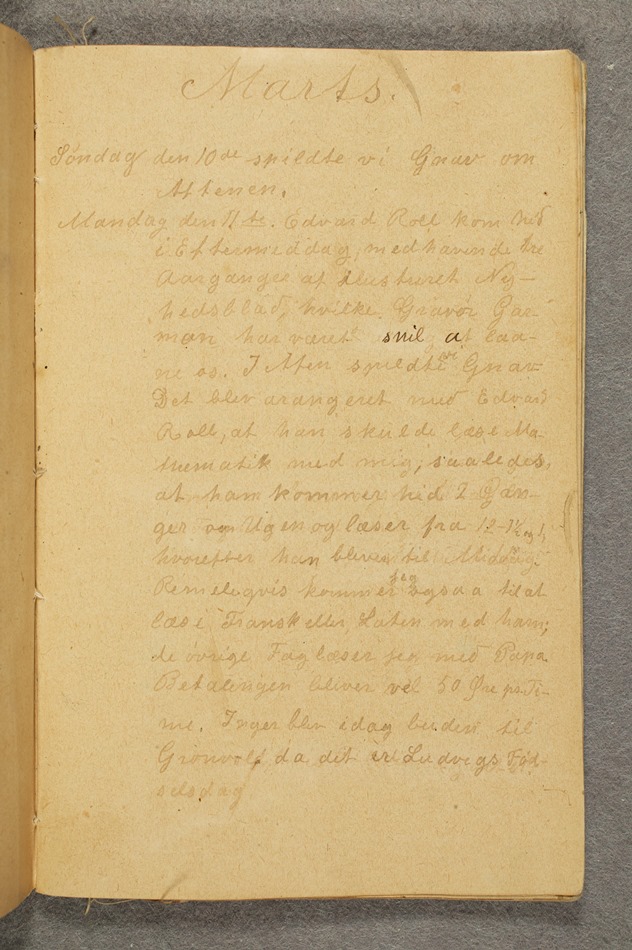 Marts.
Søndag den 10de spildte vi Gnav om
Aftenen.
Mandag den 11te. Edvard Roll kom hid
i Eftermiddag, medhavende tre
Aargange af illustreret Ny-
hedsblad, hvilke Gravør Gar-
man har været snil at laa-
ne os. I Aften spildte vi Gnav
Det blev arangeret med Edvard
Roll, at han skulde læse Ma-
thematik med mig, saaledes,
at han kommer hid 2 Gan-
ger om Ugen og læser fra 12-1½
hvorefter han bliver til Middag.
Rimeligvis kommer jeg ogsaa til at
læse Fransk eller Latin med ham;
de øvrige Fag læser jeg med Papa
Betalingen bliver vel 50 Øre pr. Ti-
me. Inger blev idag buden til
Grønvold da det er Ludvigs Fød-
selsdag